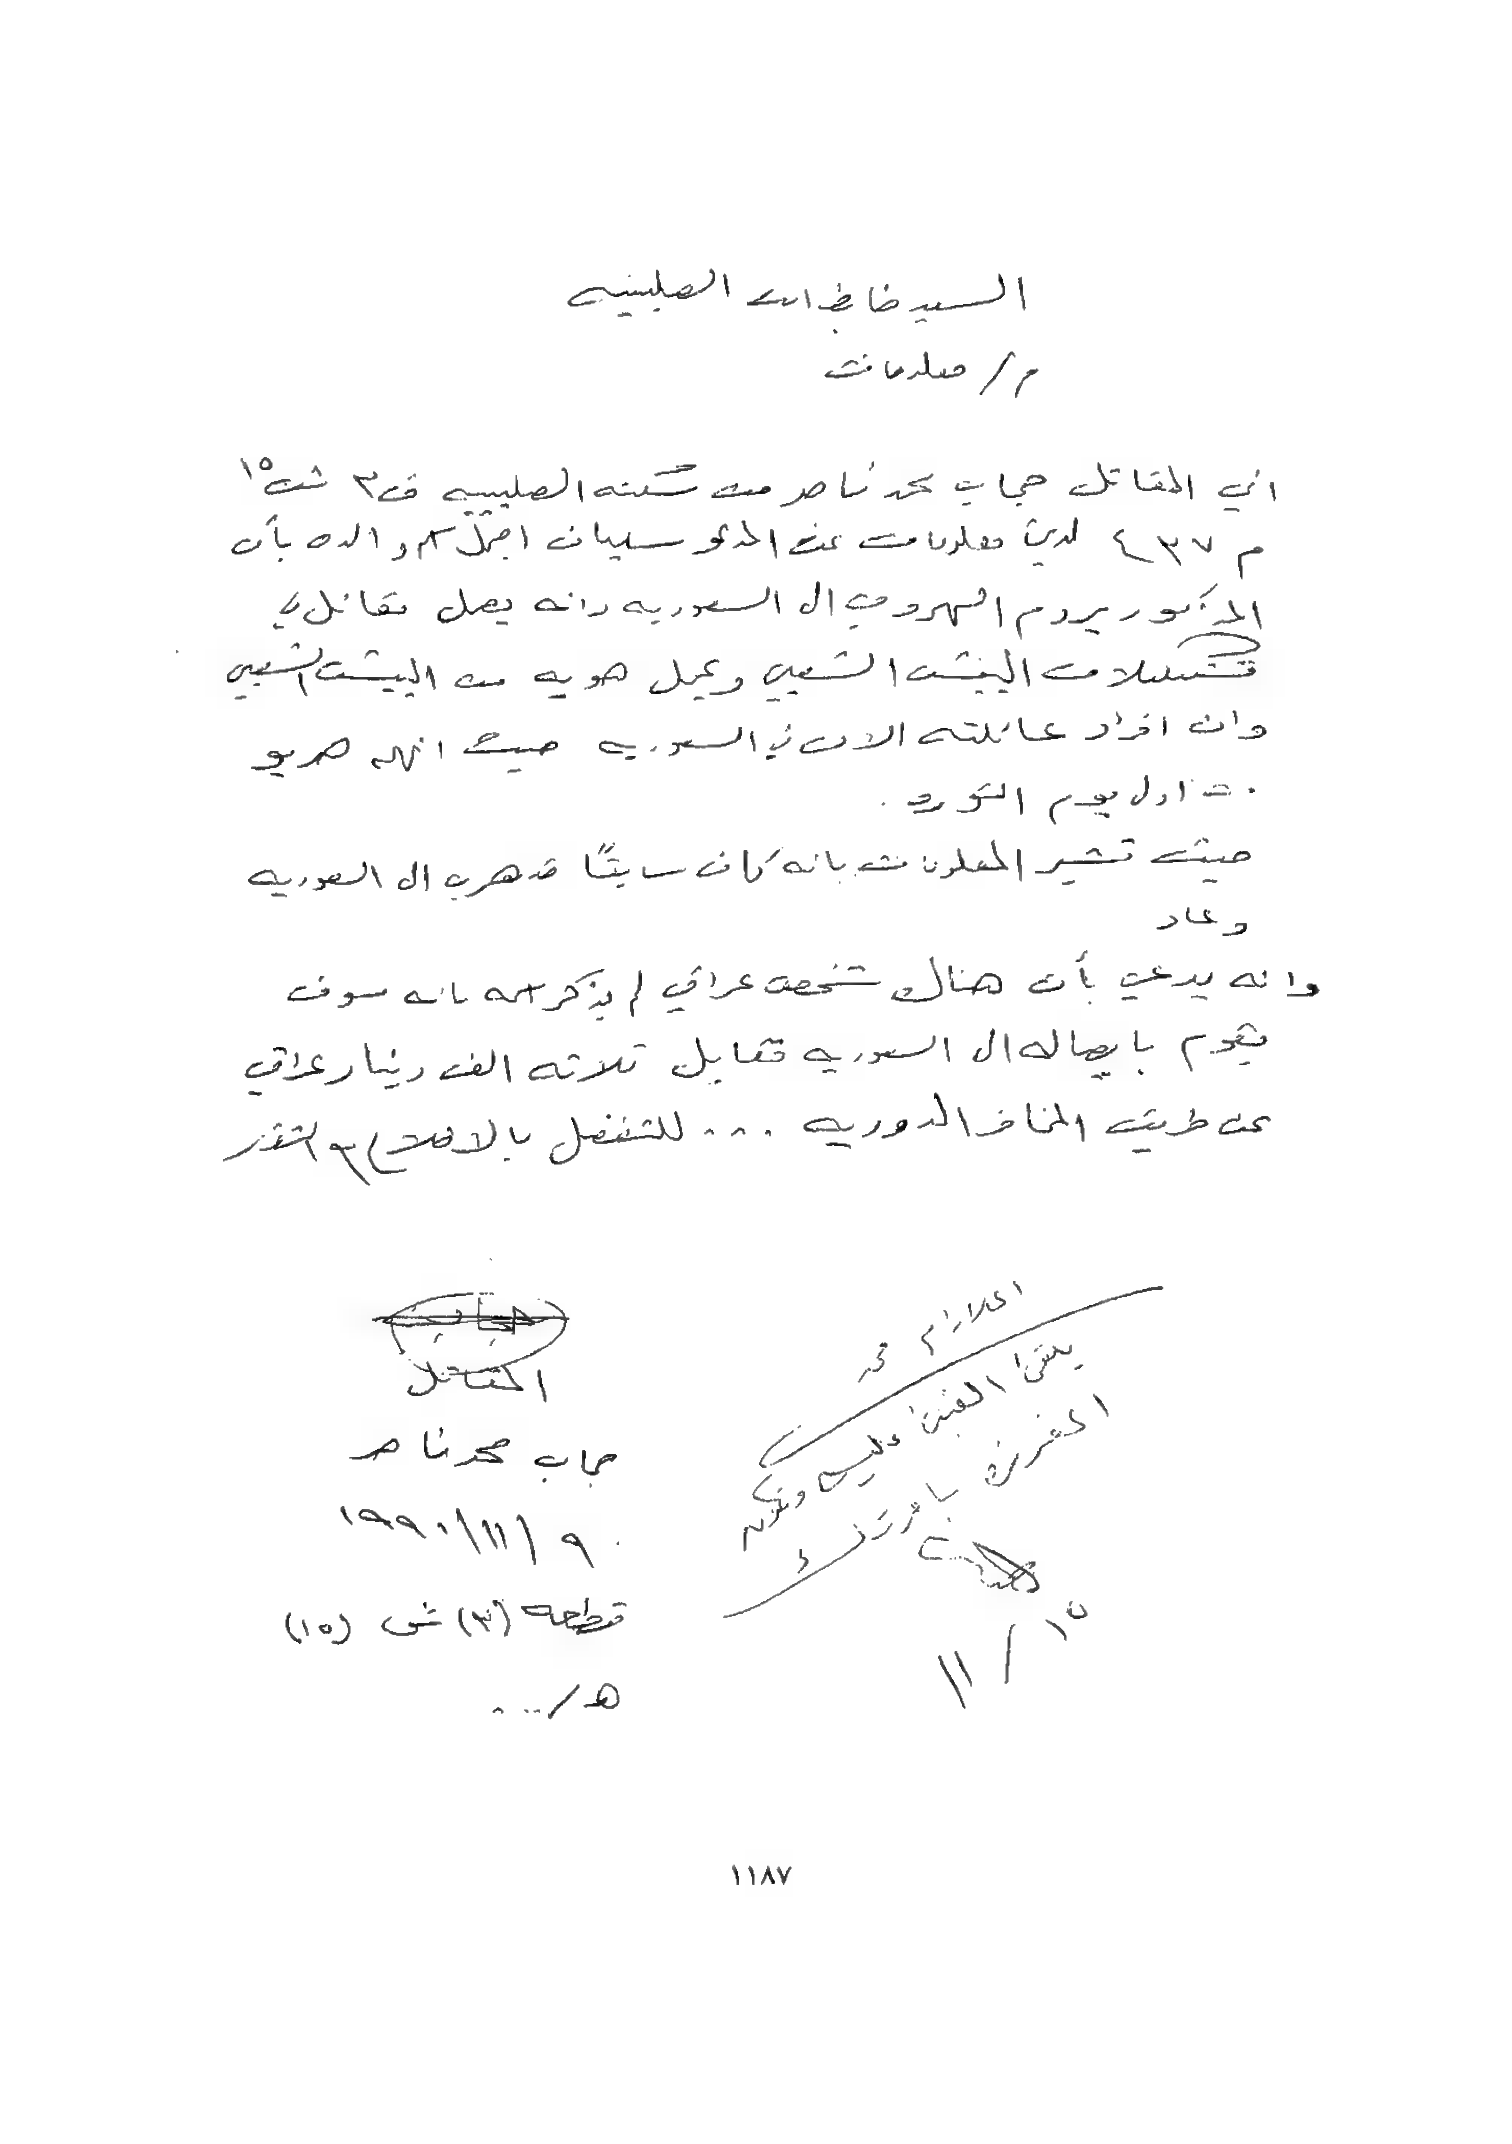 السيد ضابط امن الصليبيه
م/ معلومات
اني المقاتل حجاب محمد ناصر من سكنه الصليبيه ق٣ ش ١٥
م ٤٣٧ لدي معلومات عن المدعو سليمان والده بأن
المذكور يروم الهروب ال السعوديه وانه يعمل مقاتل في
تشكيلات الجيش الشعبي ويحمل هويه من الجيش الشعبي
وان افراد عائلته الان في السعوديه حيث انهم هربو
من اول يوم الثوره .
حيث تشير المعلومات بانه كان سابقاً قد هرب ال السعوديه
وعاد
وانه يدعي بأن هناك شخص عراقي لم يذكر اسمه بانه سوف
يقوم بايصاله ال السعوديه مقابل ثلاثه الف دينار عراقي
عن طريق المخافر الدوريه ... للتفضل بالاطلاع مع التقدير
المقاتل
حجاب محمد ناصر
٩/١١/١٩٩٠
قطعه (٣) ش (١٥)
هـ/...
يلقى القبض عليه
١٥/١١
١١٨٧